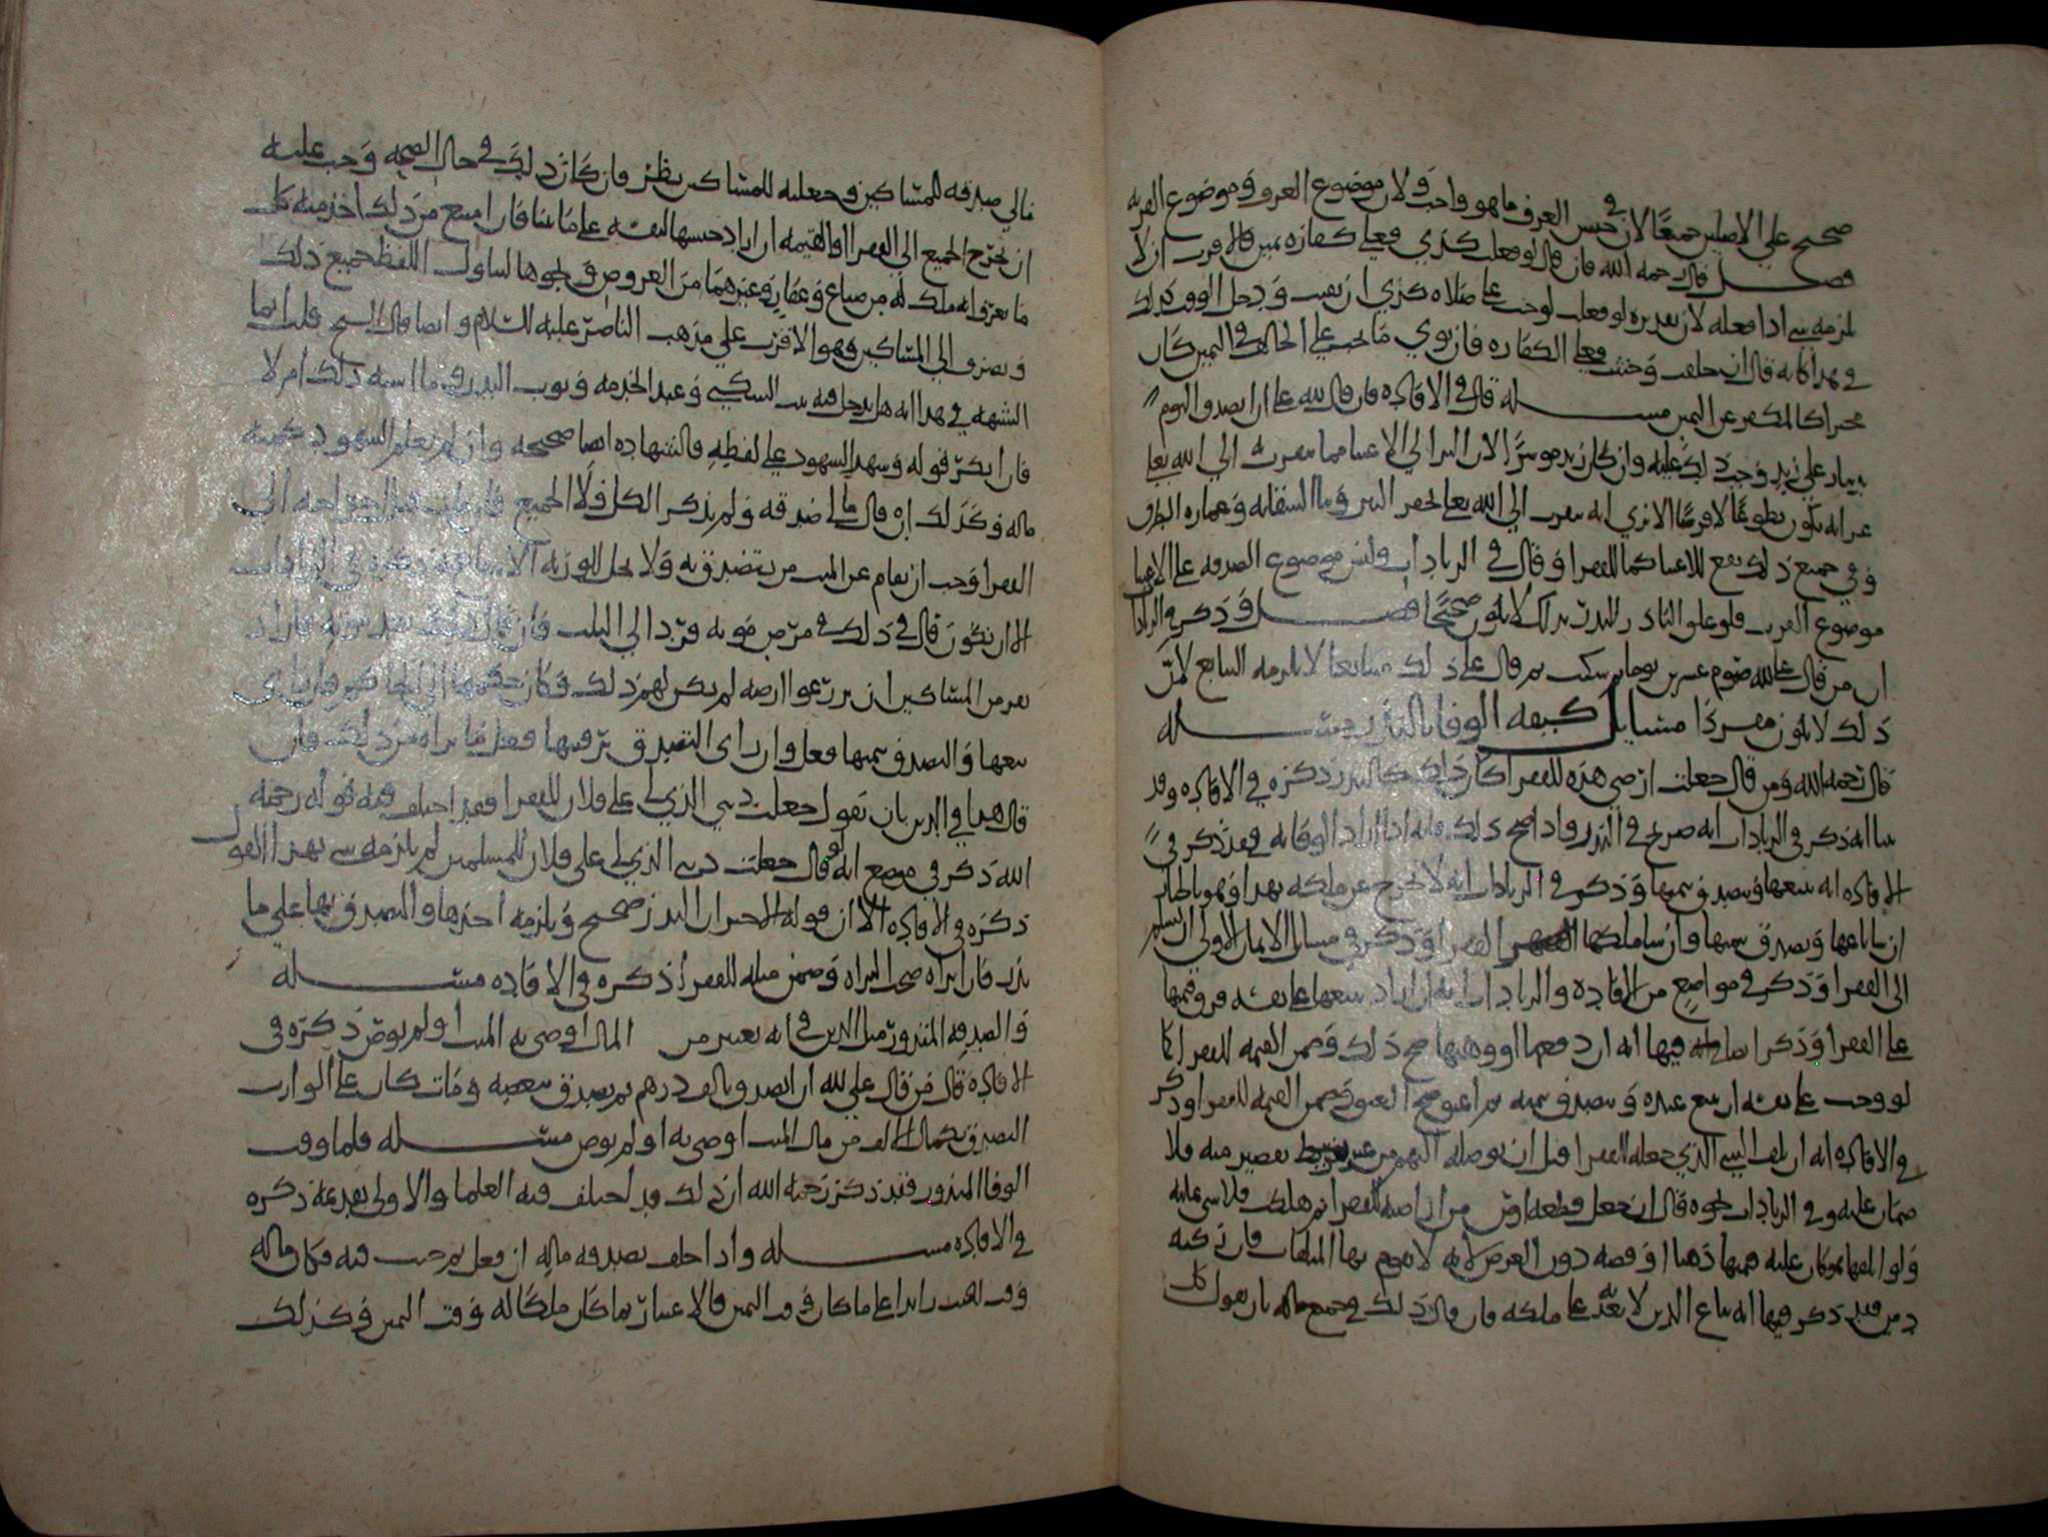 صحيح على الاصلين جميعًا لان في حبس العرف ما هو واجب ولان موضوع العرف وموضوع القربه
فصل قال رحمه الله فان قال لو فعلت كذي فعلي كفارة يمين فالاقرب ان لا
يلزمه شي اذا فعله لان تقديره لو فعلت لوجب علي صلاه كذي ان نصب ودخل الوقت كذلك
في هذا كانه قال ان حلفت وحنثت فعلي الكفاره فان نوي ما يجب علي الحالف في اليمين كان
مخيرا كالمكفر عن اليمين مسله قال في الافاده فان قال لله علي ان اتصدق اليوم
بدينار علي زيد وجب ذلك عليه وان كان زيد موسرًا لان البر الي الاغنيا مما يتقرب به الي الله تعلي
غير انه يكون تطوعًا لا فرضًا الا تري انه يتقرب الي الله تعلي بحفر البير وما السقايه وعماره الطرق
وفي جميع ذلك نفع للاغنيا كما للفقرا وقال في الزيادات وليس موضوع الصدقه علي الاغنيا
موضوع القرب فلو علق الناذر النذر بذلك لا يكون صحيحًا فصل وذكر في الزيادات
ان من قال علي لله صوم عشرين يوما ثم سكت ثم قال علي ذلك متتابعا لا يلزمه التتابع لان
ذلك لا يكون مفردا مسايل كيفيه الوفا بالنذر مسله
قال رحمه الله ومن قال جعلت ارضي هذه للفقرا كان ذلك كالنذر ذكره في الافاده وقد
بينا انه ذكر في الزيادات انه صريح في النذر واذا صح ذلك فانه اذا اراد الوفا به فقد ذكر في
الافاده انه يبيعها ويتصدق بثمنها وذكر في الزيادات انه لا تخرج عن ملكه بهذا وهو بالخيار
ان شا باعها وتصدق بثمنها وان شا ملكها الفقرا وذكر في مسايل الايمان الاولي ان يسلم
الي الفقرا وذكر في مواضع من الافاده والزيادات انه ان اراد يبيعها علي نفسه فرق قيمتها
علي الفقرا وذكر ايضا فيها انه ان وقفها او وهبها صح ذلك وضمن القيمه للفقرا كما
لو وجب علي نفسه ان يبيع عبده ويتصدق بثمنه ثم اعتق صح العتق وضمن القيمه للفقرا وذكر
في الافاده انه ان تلف الشي الذي جعله للفقرا قبل ان يوصله اليهم من غير تفريط تقصير منه فلا
ضمان عليه وفي الزيادات نحوه قال ان جعل قطعه ارض من اراضيه للفقرا ثم هلكت فلا شي عليه
ولو اتلفها هو كان عليه قيمتها ذهبا او فضه دون العرض لانه لا يقوم بها المتلفات فان ركبه
دين فقد ذكر فيها انه يباع الدين لا بقي علي ملكه فان قال ذلك في جميع ماله بان يقول كل
مالي صدقه للمساكين وجعلته للمساكين نظر فان كان ذلك في حال الصحه وجب عليه
ان يخرج الجميع الي الفقرا او القيمه ان اراد حبسها لنفسه علي ما بينا فان امتنع من ذلك اخذ منه كل
ما يعرف انه ملك له من ضياع وعقار وغيرهما من العروض ونحوها لتناول اللفظ جميع ذلك
وتصرف الي المساكين وهو الاقرب علي مذهب الناصر عليه السلام وايضا قال الشيخ قلت انما
الشبهه في هذا انه هل يدخل فيه بيت السكني وعبد الخدمه وثوب البدن وما اشبه ذلك ام لا
فان انكر قوله وشهد الشهود علي لفظه فالشهاده ايضا صحيحه وان لم يعلم الشهود كميه
ماله وكذلك ان قال مالي صدقه ولم يذكر الكل ولا الجميع فان مات قبل اخراجه الي
الفقرا وجب ان يقام عن الميت من يتصدق به ولا يحل للورثه الا
الا ان يكون قال في ذلك في مرض موته فيرد الي الثلث فان
نفر من المساكين ان يزرعوا ارضه لم يكن لهم ذلك وكان حكمها الي الحاكم فان راي
بيعها والتصدق بثمنها فعل وان راي التصدق برقبتها فعل ما يراه من ذلك فان
قال هذا في الدين بان يقول جعلت ديني الذي لي علي فلان للفقرا فقد اختلف فيه قوله رحمه
الله ذكر في موضع انه لو قال جعلت ديني الذي لي علي فلان للمسلمين لم يلزمه شي بهذا القول
ذكره في الافاده الا ان قوله الاخير ان النذر صحيح ويلزمه اخذها والتصدق بها علي ما
نذر فان ابراه صحت البراه وضمن مثله للفقرا ذكره في الافاده مسله
والصدقه المنذوره مثل الدين في انه يعتبر من المال اوصي به الميت او لم يوص ذكره في
الافاده قال من قال علي لله ان اتصدق بالف درهم ثم تصدق ببعضه ومات كان علي الوارث
التصدق بكمال الالف من مال الميت اوصي به او لم يوص مسله فاما وقت
الوفا بالمنذور فقد ذكر رحمه الله ان ذلك قد اختلف فيه العلما والاولي تقدمه ذكره
في الافاده مسله واذا حلف بصدقه ماله ان فعل ثم حنث فيه فكان ماله
وقت الحنث زايدا علي ما كان وقت اليمين فالاعتبار بما كان ملكا له وقت اليمين وكذلك